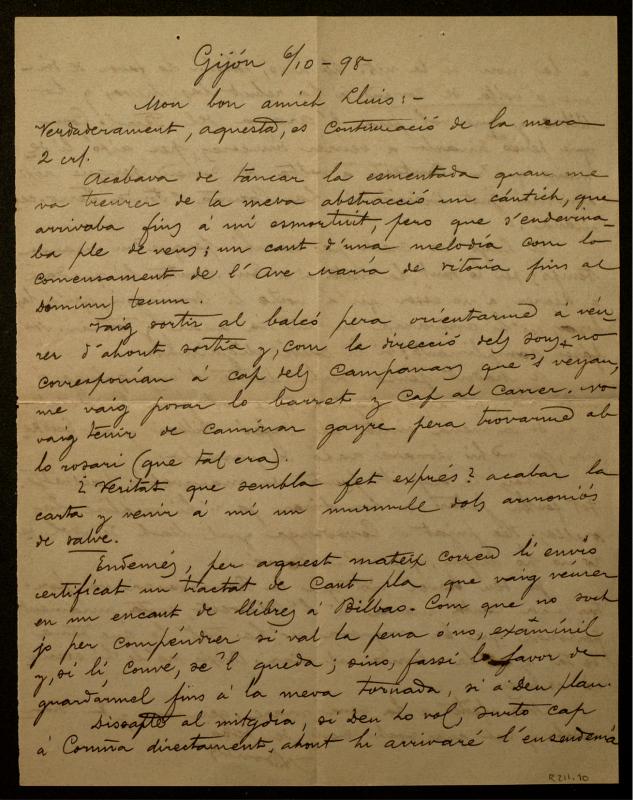 Gijón 6/10-98
Mon bon amich Lluis:-
Verdaderament, aquesta, es continuació de la meva
2 crt.
Acabava de tancar la esmentada quan me
va treurer de la meva abstracció un cántich, que
arrivaba fins á mí esmortuit, pero que s'endevina-
ba ple de veus; un cant d'una melodía com lo
comensament de l'Ave María de Vitoria fins al
Dóminus tecum.
Vaig sortir al balcó pera orientarme á véu
rer d'ahont sortía y, com la direcció dels sons no
corresponían á cap dels campanars que's veyan,
me vaig posar lo barret y cap al carrer. No
vaig tenir de caminar gayre pera trovarme ab
lo rosari (que tal era).
¿Veritat que sembla fet exprés? acabar la
carta y venir á mí un murmull dols armoniós
de salve.
Endemés, per aquest mateix correu li envío
certificat un tractat de Cant pla que vaig véurer
en un encant de llibres á Bilbao. Com que no soch
jo per compéndrer si val la pena ó no, examínil
y, si li convé, se'l queda; sino, fassi lo favor de
guardármel fins á la meva tornada, si á Deu plau.
Dissapte al mitgdía, si Deu ho vol, surto cap
á Coruña directament, ahont hi arrivaré l'ensendemá
R211.10